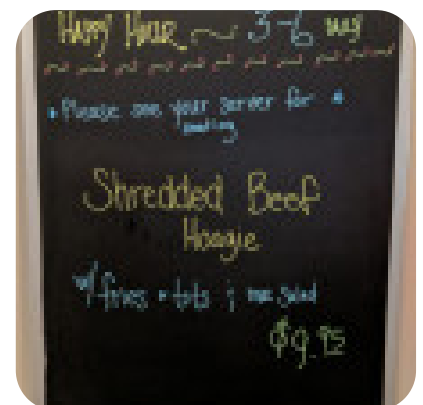 Happy Hour ~ 3-6 
• Please see your server for •
Shredded Beef
Hoogie
w/ fries • tots ;
$9.95